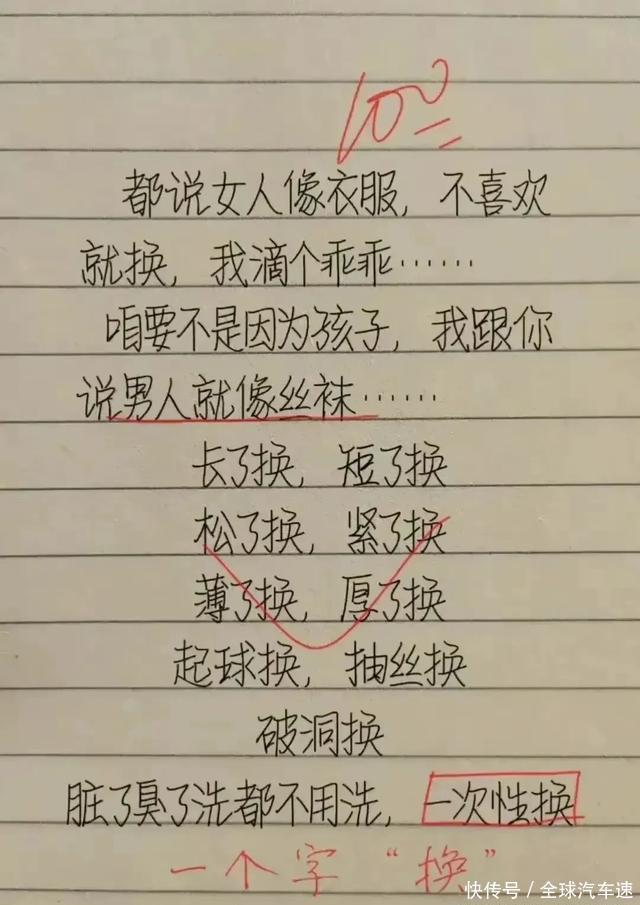 100
都说女人像衣服，不喜欢
就换，我滴个乖乖……
咱要不是因为孩子，我跟你
说男人就像丝袜……
长了换，短了换
松了换，紧了换
薄了换，厚了换
起球换，抽丝换
破洞换
脏了臭了洗都不用洗，一次性换
一个字“换”
快传号／全球汽车速